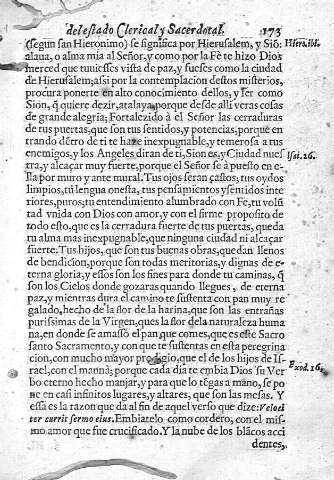 del estado Clerical y Sacerdotal. 173
(segun san Hieronimo) se significa por Hierusalem, y Siõ. Hiers.ibi.
alaua, o alma mia al Señor, y como por la Fè te hizo Dios
merced que tuuiesses vista de paz, y fuesses como la ciudad
de Hierusalem; assi por la contemplacion destos misterios,
procura ponerte en alto conocimiento dellos, y ser como
Sion, q̃ quiere dezir, atalaya, porque desde alli veras cosas
de grande alegria; Fortalezido à el Señor las cerraduras
de tus puertas, que son tus sentidos, y potencias, porque en
trando dẽtro de ti te haze inexpugnable, y temerosa a tus
enemigos, y los Angeles diran de ti, Sion es, y Ciudad nues Isai.26.
tra, y alcaçar muy fuerte, porque el Señor se à puesto en e-
lla por muro y ante mural. Tus ojos seran castos, tus oydos
limpios, tu lengua onesta, tus pensamientos y sentidos inte
riores, puros; tu entendimiento alumbrado con Fe, tu volũ
tad vnida con Dios con amor, y con el firme proposito de
todo esto, que es la cerradura fuerte de tus puertas, queda
tu alma mas inexpugnable, que ninguna ciudad ni alcaçar
fuerte. Tus hijos, que son tus buenas obras, quedan llenos
de bendicion, porque son todas meritorias, y dignas de e-
terna gloria; y essos son los fines para donde tu caminas, q̃
son los Cielos donde gozaras quando llegues, de eterna
paz, y mientras dura el camino te sustenta con pan muy re
galado, hecho de la flor de la harina, que son las entrañas
purissimas de la Virgen, que es la flor de la naturaleza huma
na, en donde se amasso el pan, que comes, que es este Sacro
santo Sacramento, y con que te sustentas en esta peregrina
cion, con mucho mayor prodigio, que el de los hijos de Is-
rael, con el mannà; porque cada dia te embia Dios su Ver Exod.16.
bo eterno hecho manjar, y para que lo tẽgas a mano, se po
ne en casi infinitos lugares, y altares, que son las mesas. Y
essa es la razon que da al fin de aquel verso que dize: Veloci
ter currit sermo eius. Embiatelo como cordero, con el mis-
mo amor que fue crucificado. Y la nube de los blãcos acci
dentes,